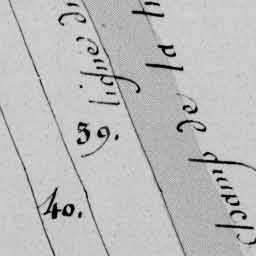 ligne d
champ de la li
39.
40.